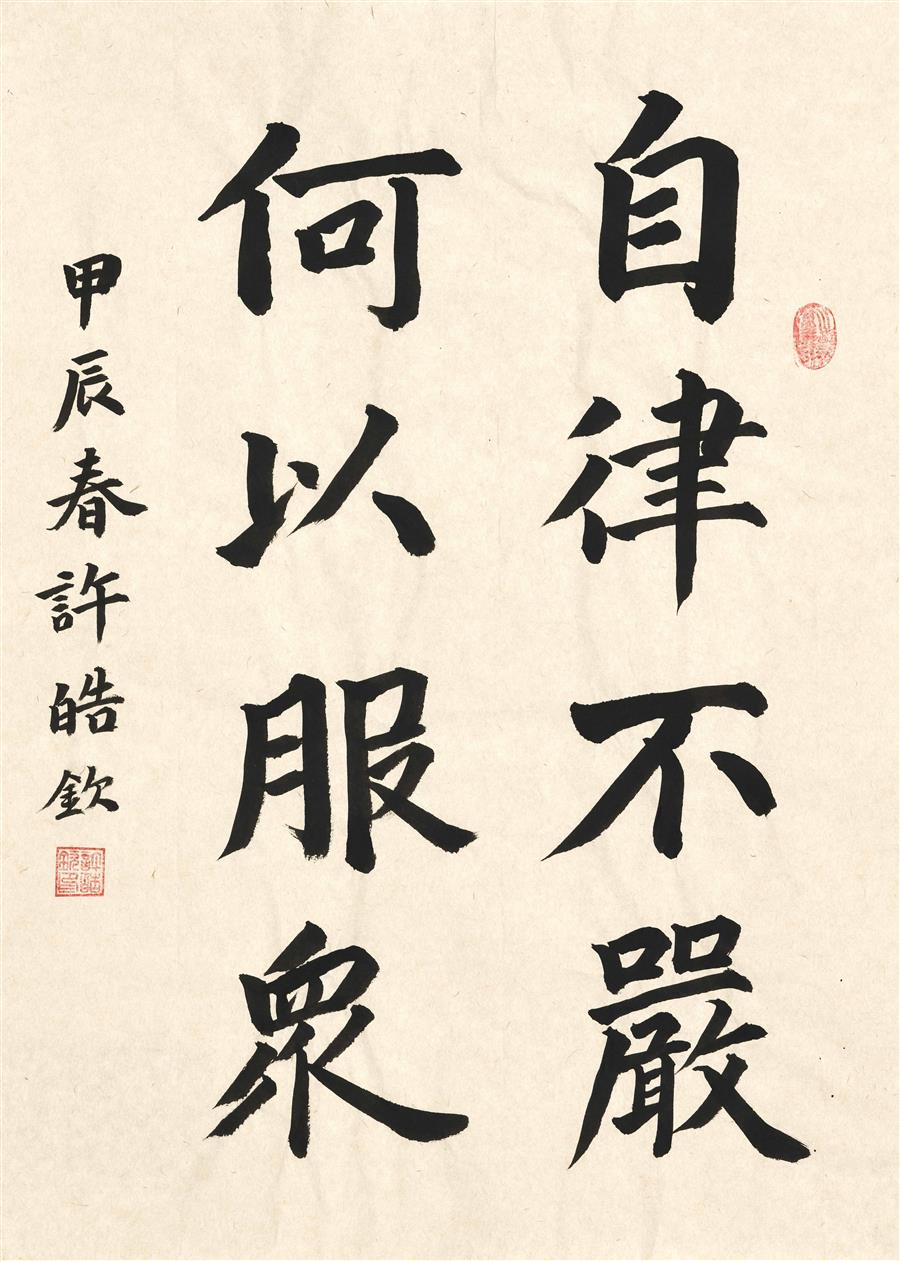 自律不嚴
何以服衆
甲辰春許皓欽